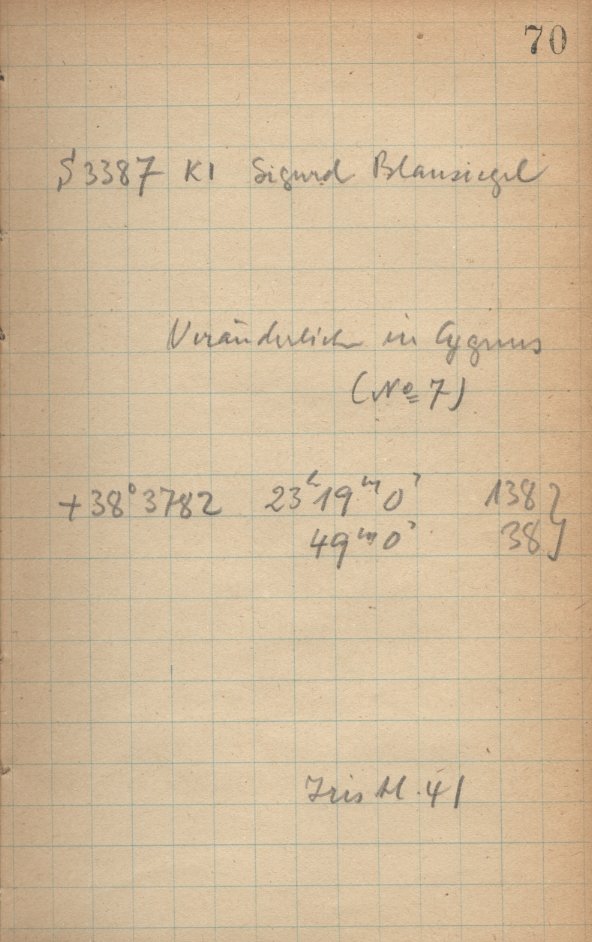 70
S 3387 K1 Sigurd Blausiegel
Veränderlich in Cygnus
(No 7)
+38° 3782 23h 19m 0s 138 }
49m 0s 38 }
Iris Bl. 41